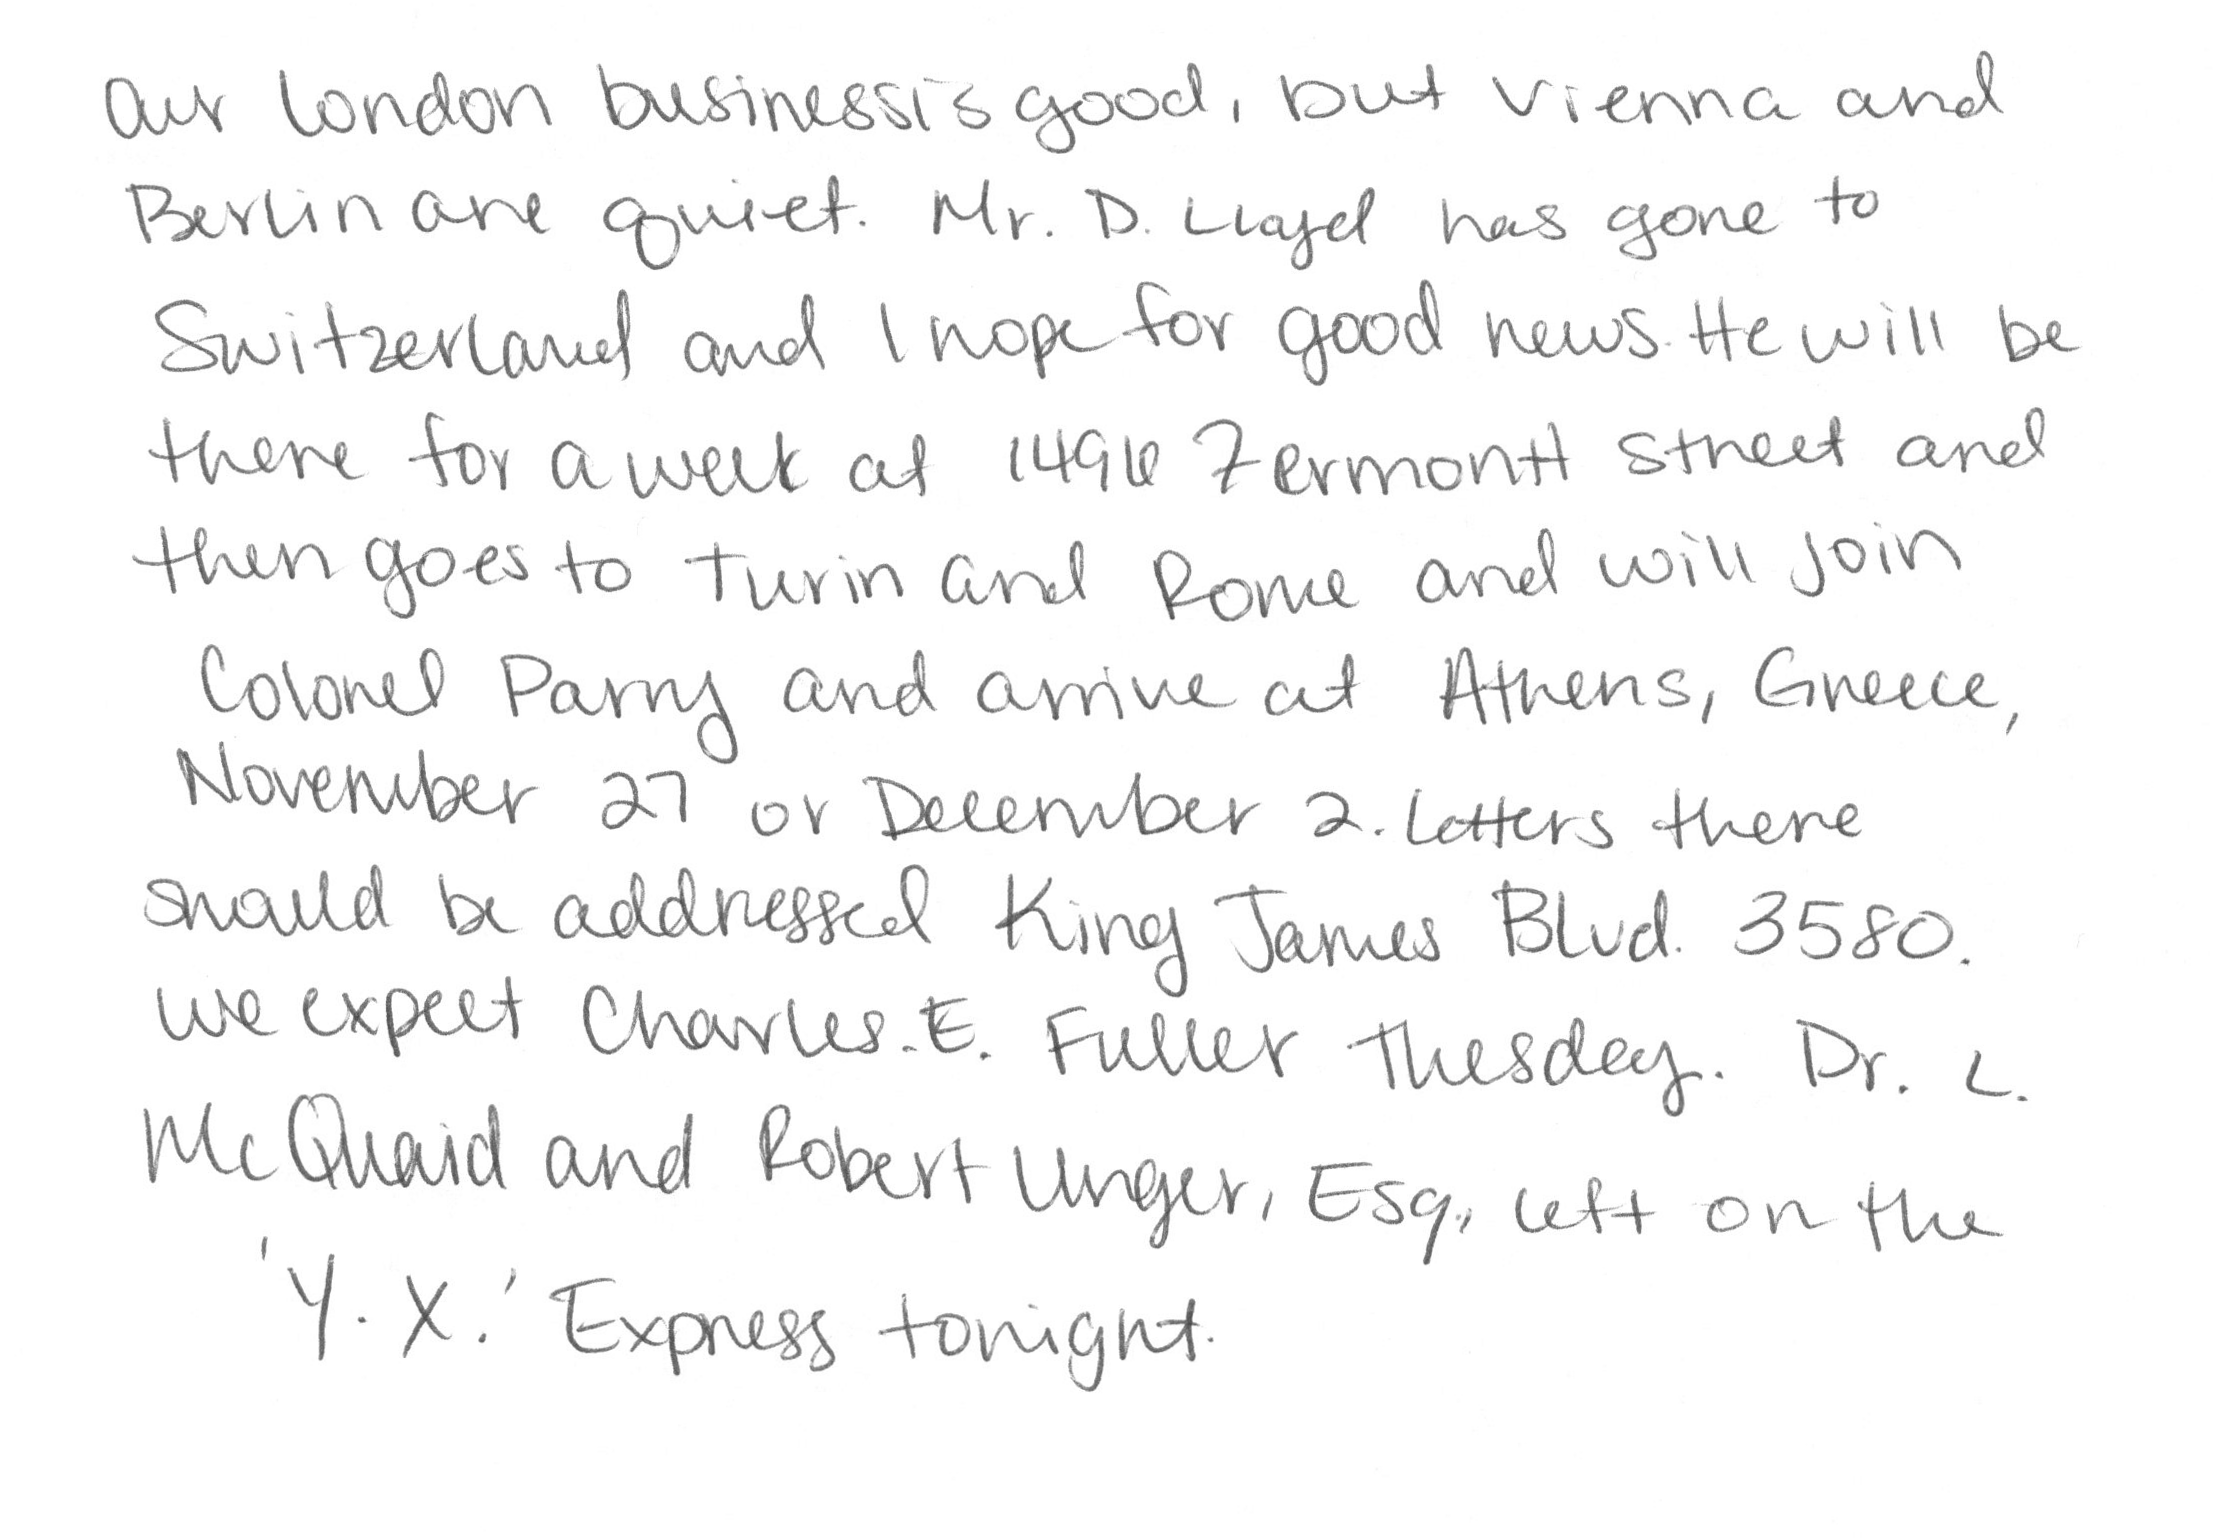 Our London business is good, but Vienna and
Berlin are quiet. Mr. D. Lloyd has gone to
Switzerland and I hope for good news. He will be
there for a week at 1496 Zermontt Street and
then goes to Turin and Rome and will join
Colonel Parry and arrive at Athens, Greece,
November 27 or December 2. Letters there
should be addressed King James Blvd. 3580.
We expect Charles. E. Fuller Thesday. Dr. L.
McQuaid and Robert Unger, Esq., left on the
'Y. X.' Express tonight.